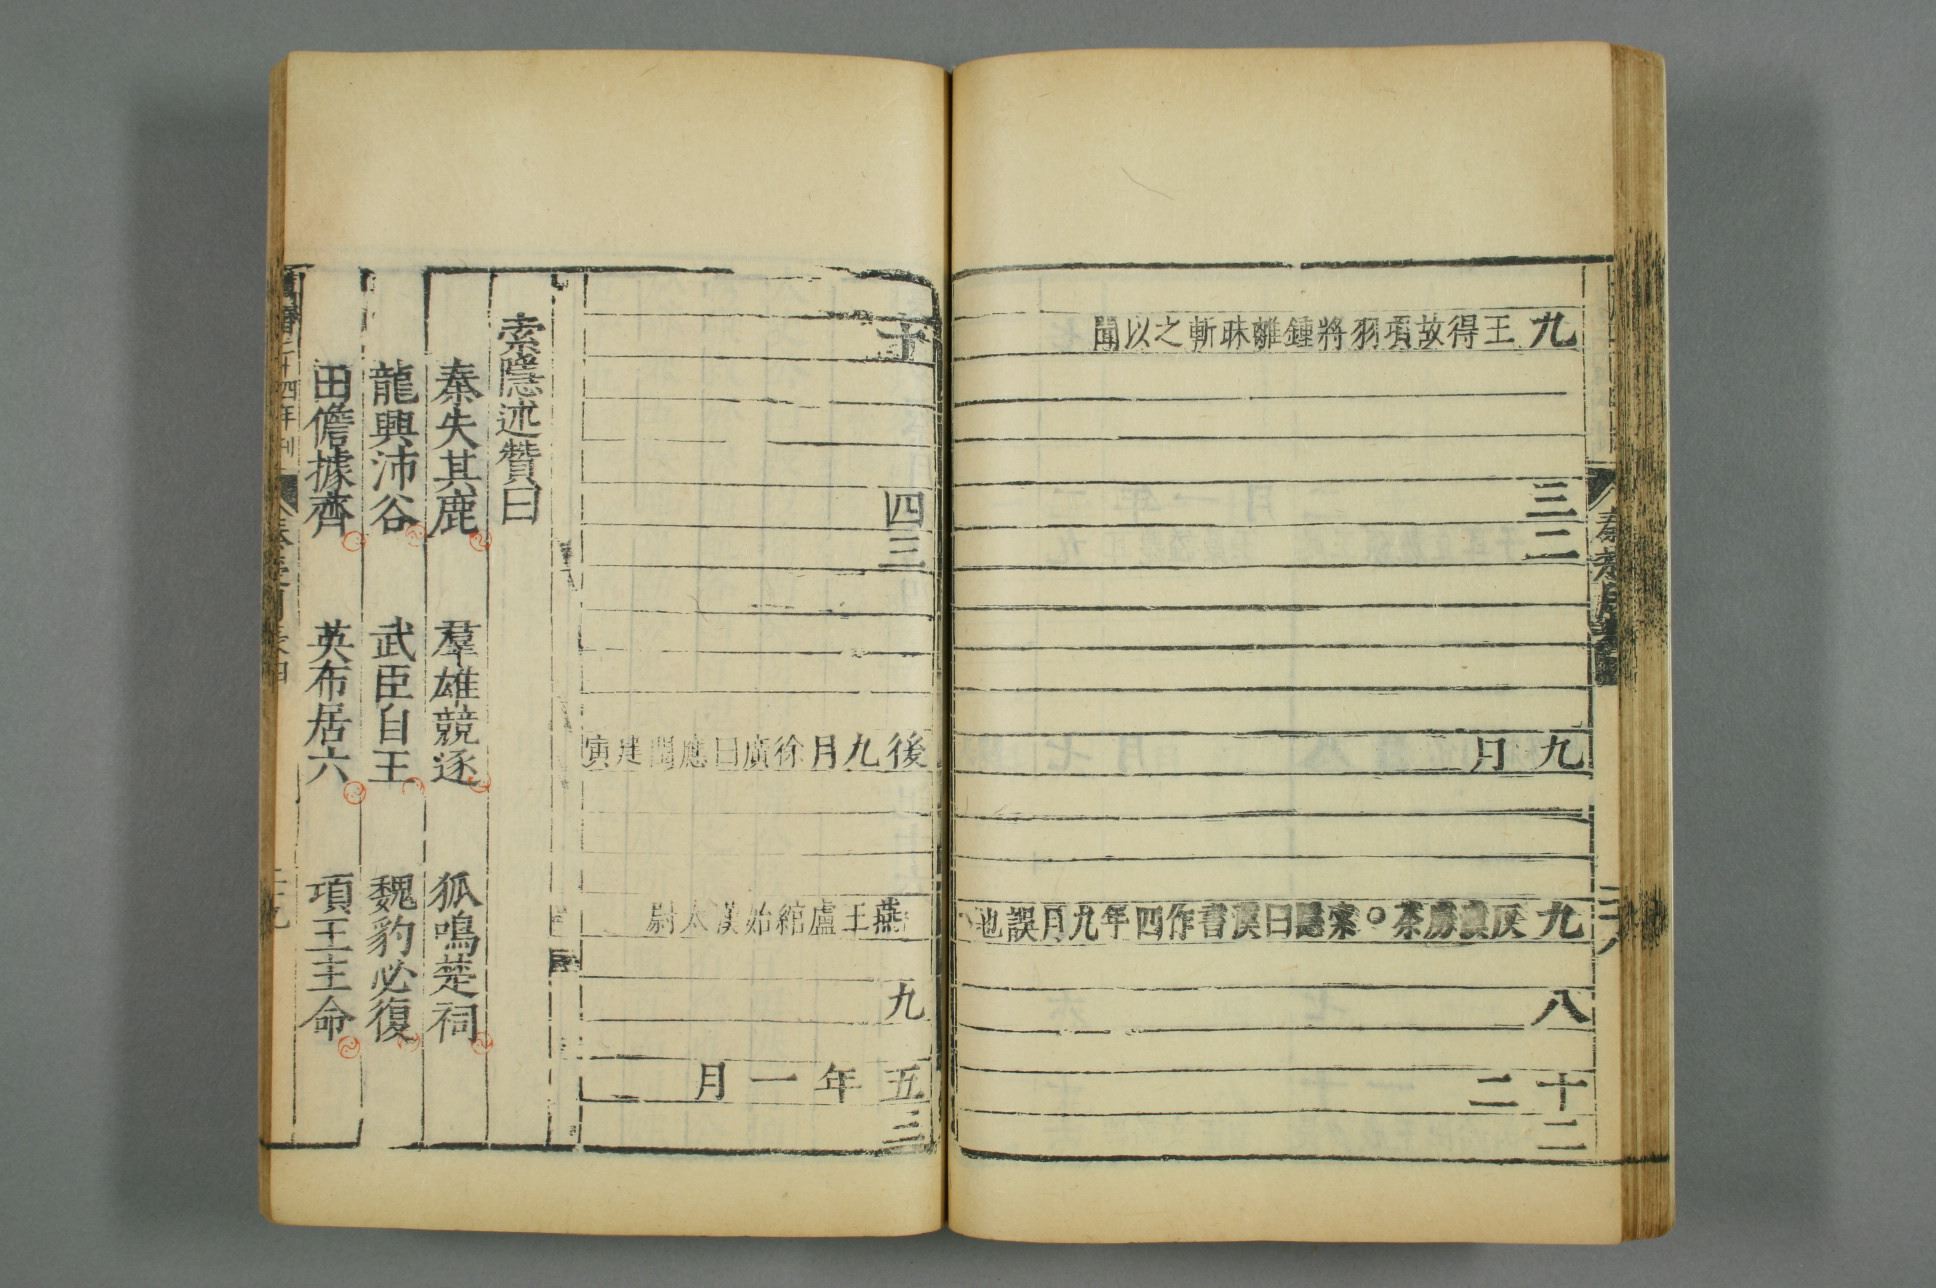 九 王得故項羽將鍾離眛斬之以聞
三
二
九月
九 反漢虜荼。索隱曰漢書作四年九月誤也
八
十二
二
秦楚月表
二十八
十
四
三
後九月 徐廣曰應閏建寅
燕王盧綰始漢太尉
九
五年一月
三
索隱述贊曰
秦失其鹿 羣雄競逐 狐鳴楚祠
龍興沛谷 武臣自王 魏豹必復
田儋據齊 英布居六 項王主命
二十四年刊
二十九